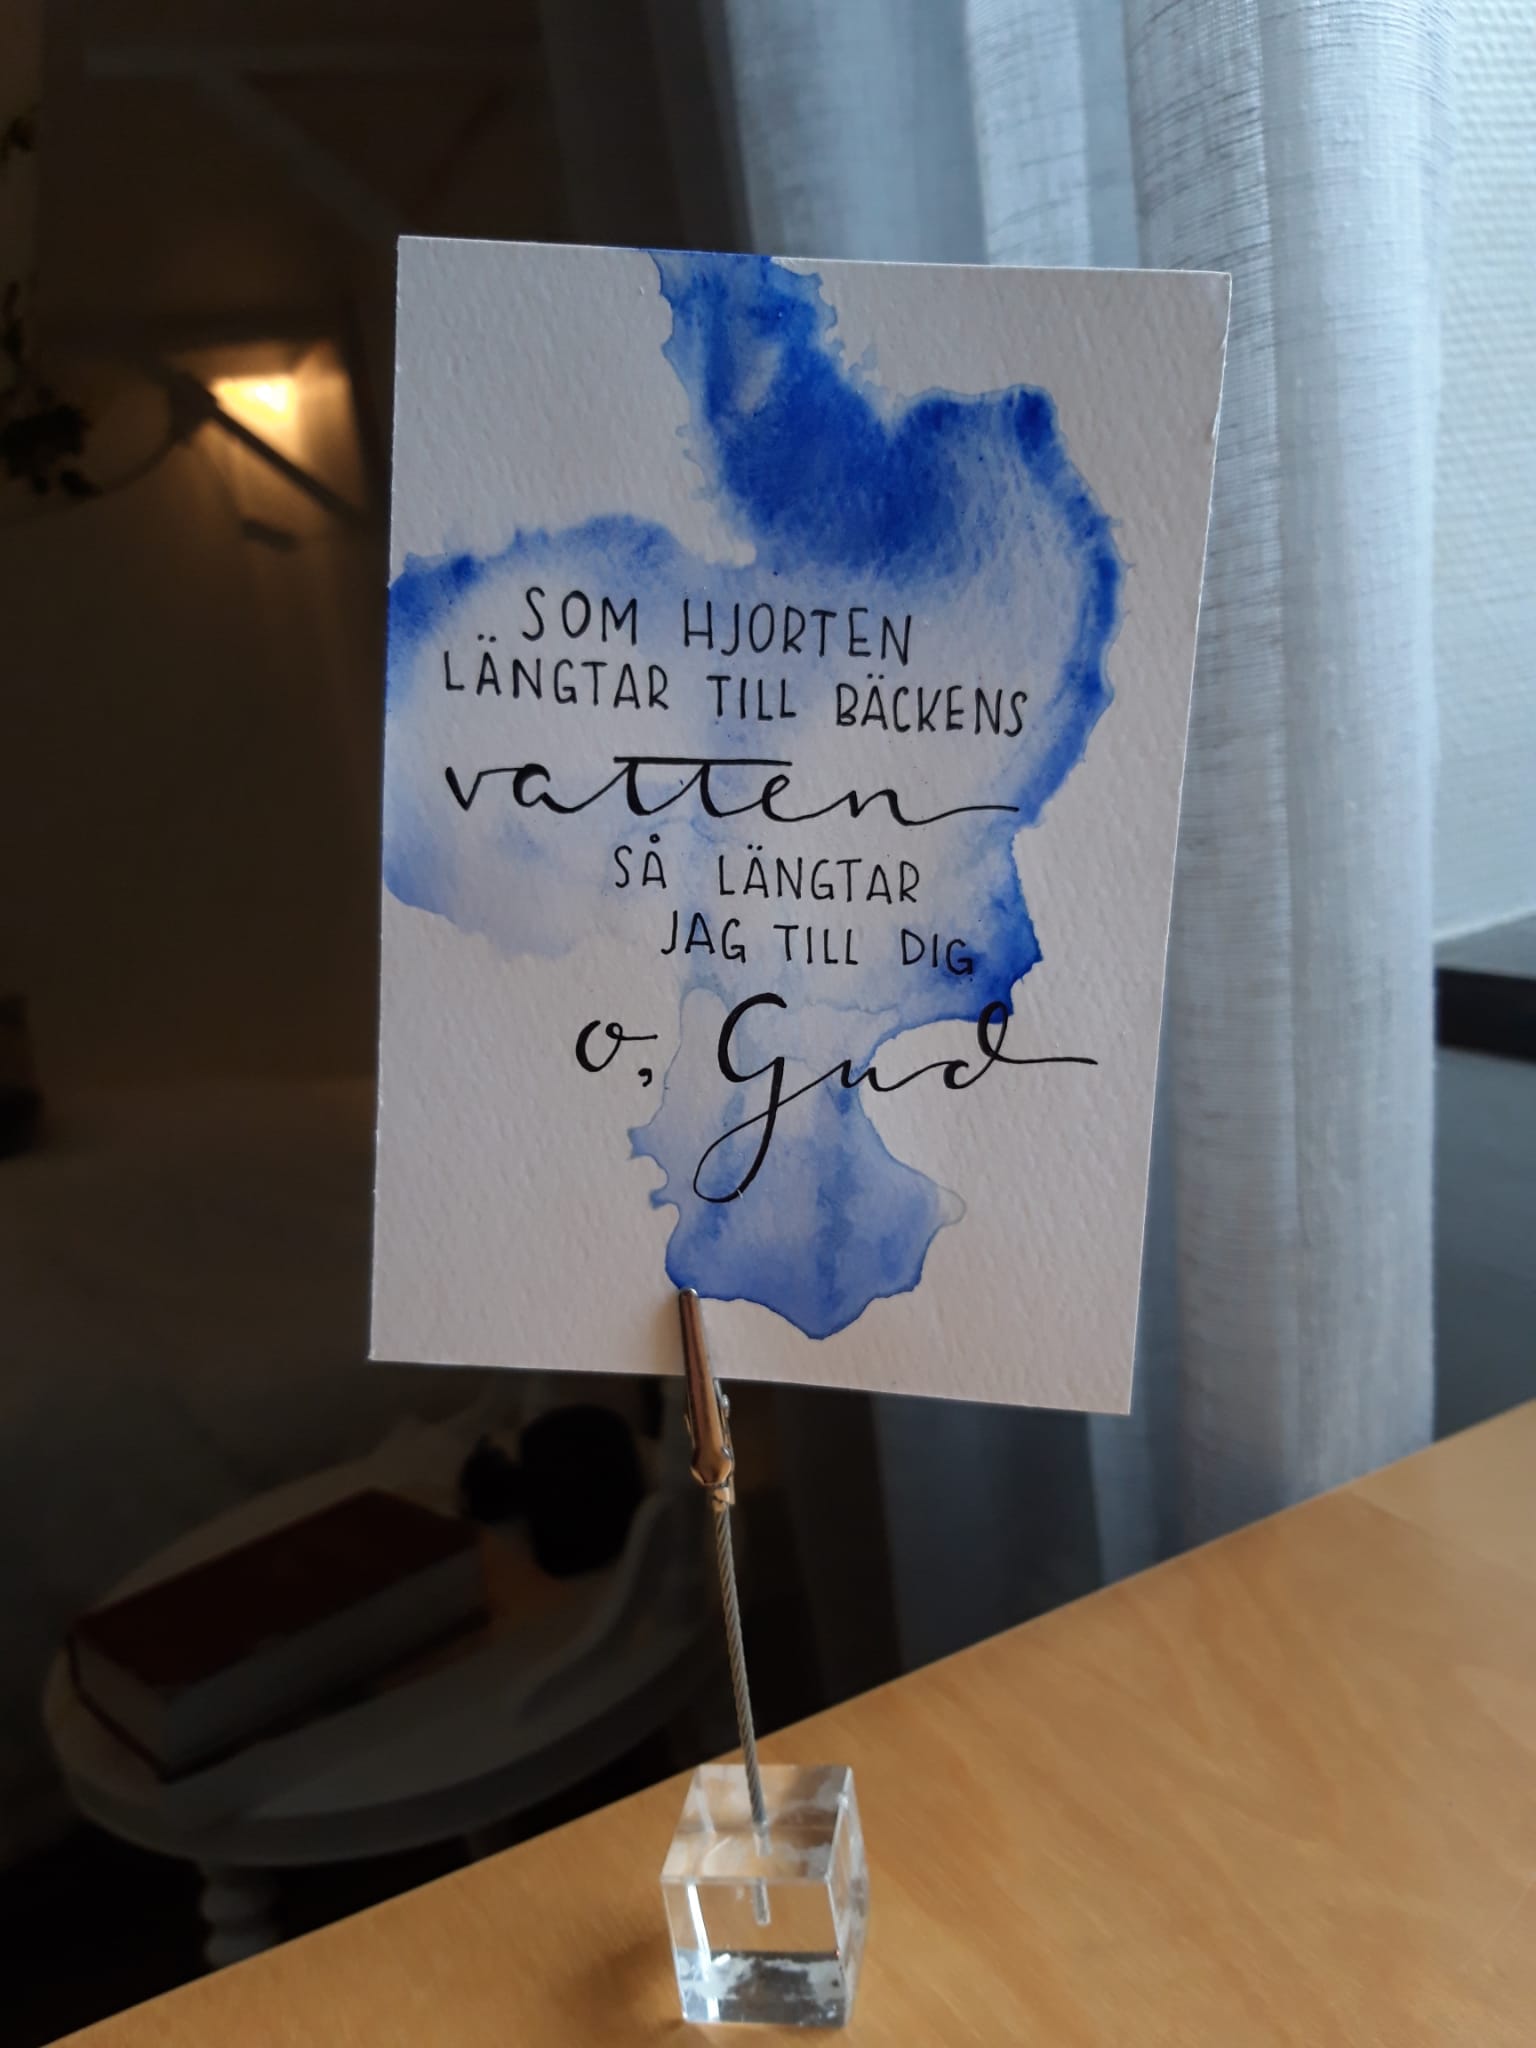 SOM HJORTEN
LÄNGTAR TILL BÄCKENS
vatten
SÅ LÄNGTAR
JAG TILL DIG
o, Gud